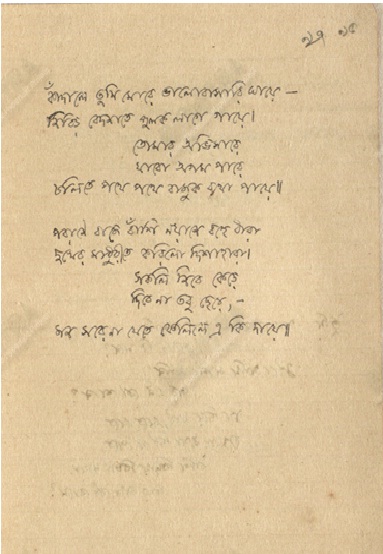 কাঁদালে তুমি মোরে ভালোবাসারি ঘায়ে—
নিবিড় বেদনাতে পুলক লাগে গায়ে।
তোমার অভিসারে
যাবো অগম পারে
চলিতে পথে পথে বাজুক ব্যথা পায়ে॥
পরাণে বাজে বাঁশি নয়নে বহে ধারা
দুখের মাধুরীতে করিলো দিশাহারা।
সকলি নিবে কেড়ে
দিবে না তবু ছেড়ে,—
মন সরেনা যেতে ফেলিলে এ কি দায়ে॥